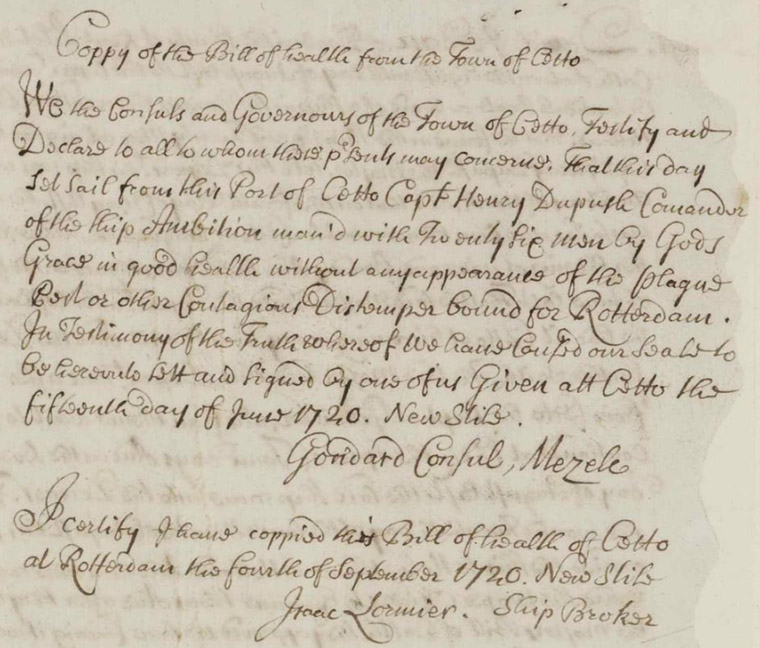 Coppy of the Bill of health from the Town of Cetto
We the Consuls and Governours of the Town of Cetto, Testify and
Declare to all to whom these p̃sents may concerne, That this day
Set Sail from this Port of Cetto Capt Henry Dupush Comander
of the ship Ambition man'd with Twenty Six men by Gods
Grace in good health without any appearance of the plague
Pest or other Contagious Distemper bound for Rotterdam.
In Testimony of the Truth whereof We have Caused our Seale to
be hereunto Sett and Signed by one of us Given att Cetto the
fifteenth day of June 1720. New Stile.
Gondard Consul, Mezele
I certify I have coppied this Bill of health of Cetto
at Rotterdam the fourth of September 1720. New Stile
Isaac Lormier. Ship Broker